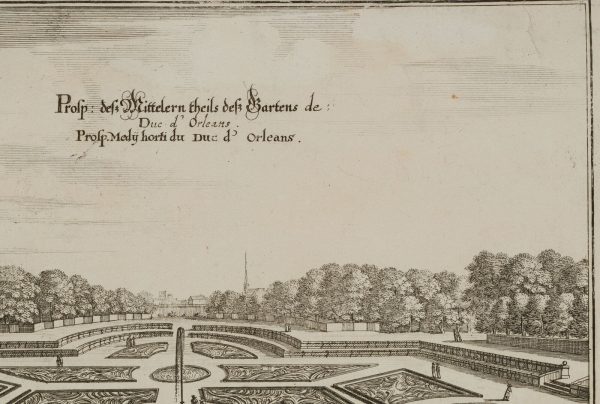 Prosp: deß Mittelern theils deß Gartens de:
Duc d' Orleans.
Prosp. Medÿ horti du Duc d' Orleans.